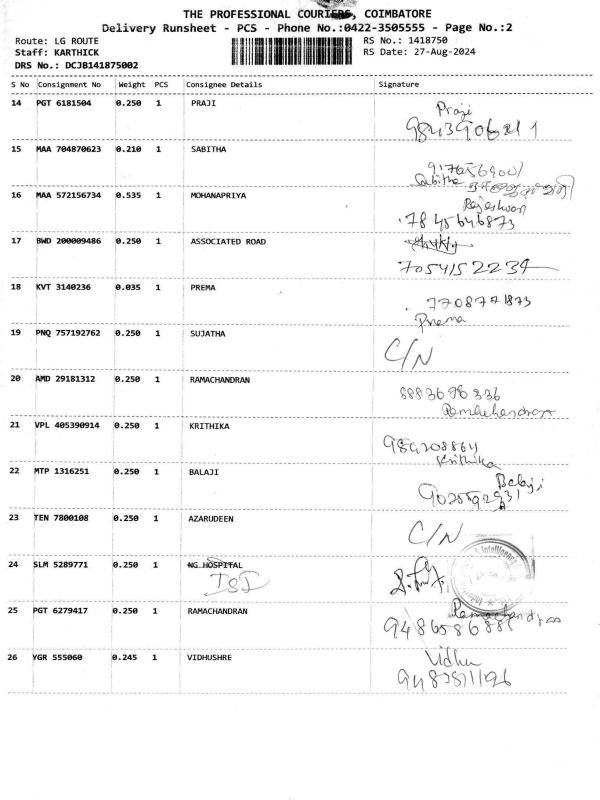 THE PROFESSIONAL COURIERS, COIMBATORE
Delivery Runsheet - PCS - Phone No.:0422-3505555 - Page No.:2
Route: LG ROUTE RS No.: 1418750
Staff: KARTHICK RS Date: 27-Aug-2024
DRS No.: DCJB141875002
S No Consignment No Weight PCS Consignee Details Signature
14 PGT 6181504 0.250 1 PRAJI Praji
15 MAA 704870623 0.210 1 SABITHA
Sabitha
16 MAA 572156734 0.535 1 MOHANAPRIYA Rajeshwari
7845646873
17 BWD 200009486 0.250 1 ASSOCIATED ROAD
7054152234
18 KVT 3140236 0.035 1 PREMA 7708771873
Prema
19 PNQ 757192762 0.250 1 SUJATHA C/N
20 AMD 29181312 0.250 1 RAMACHANDRAN
Ramachandran
21 VPL 405390914 0.250 1 KRITHIKA
Krithika
22 MTP 1316251 0.250 1 BALAJI Balaji
23 TEN 7800108 0.250 1 AZARUDEEN C/N
24 SLM 5289771 0.250 1 NG HOSPITAL
Intelligence
25 PGT 6279417 0.250 1 RAMACHANDRAN Ramachandran
26 YGR 555060 0.245 1 VIDHUSHRE Vidhu